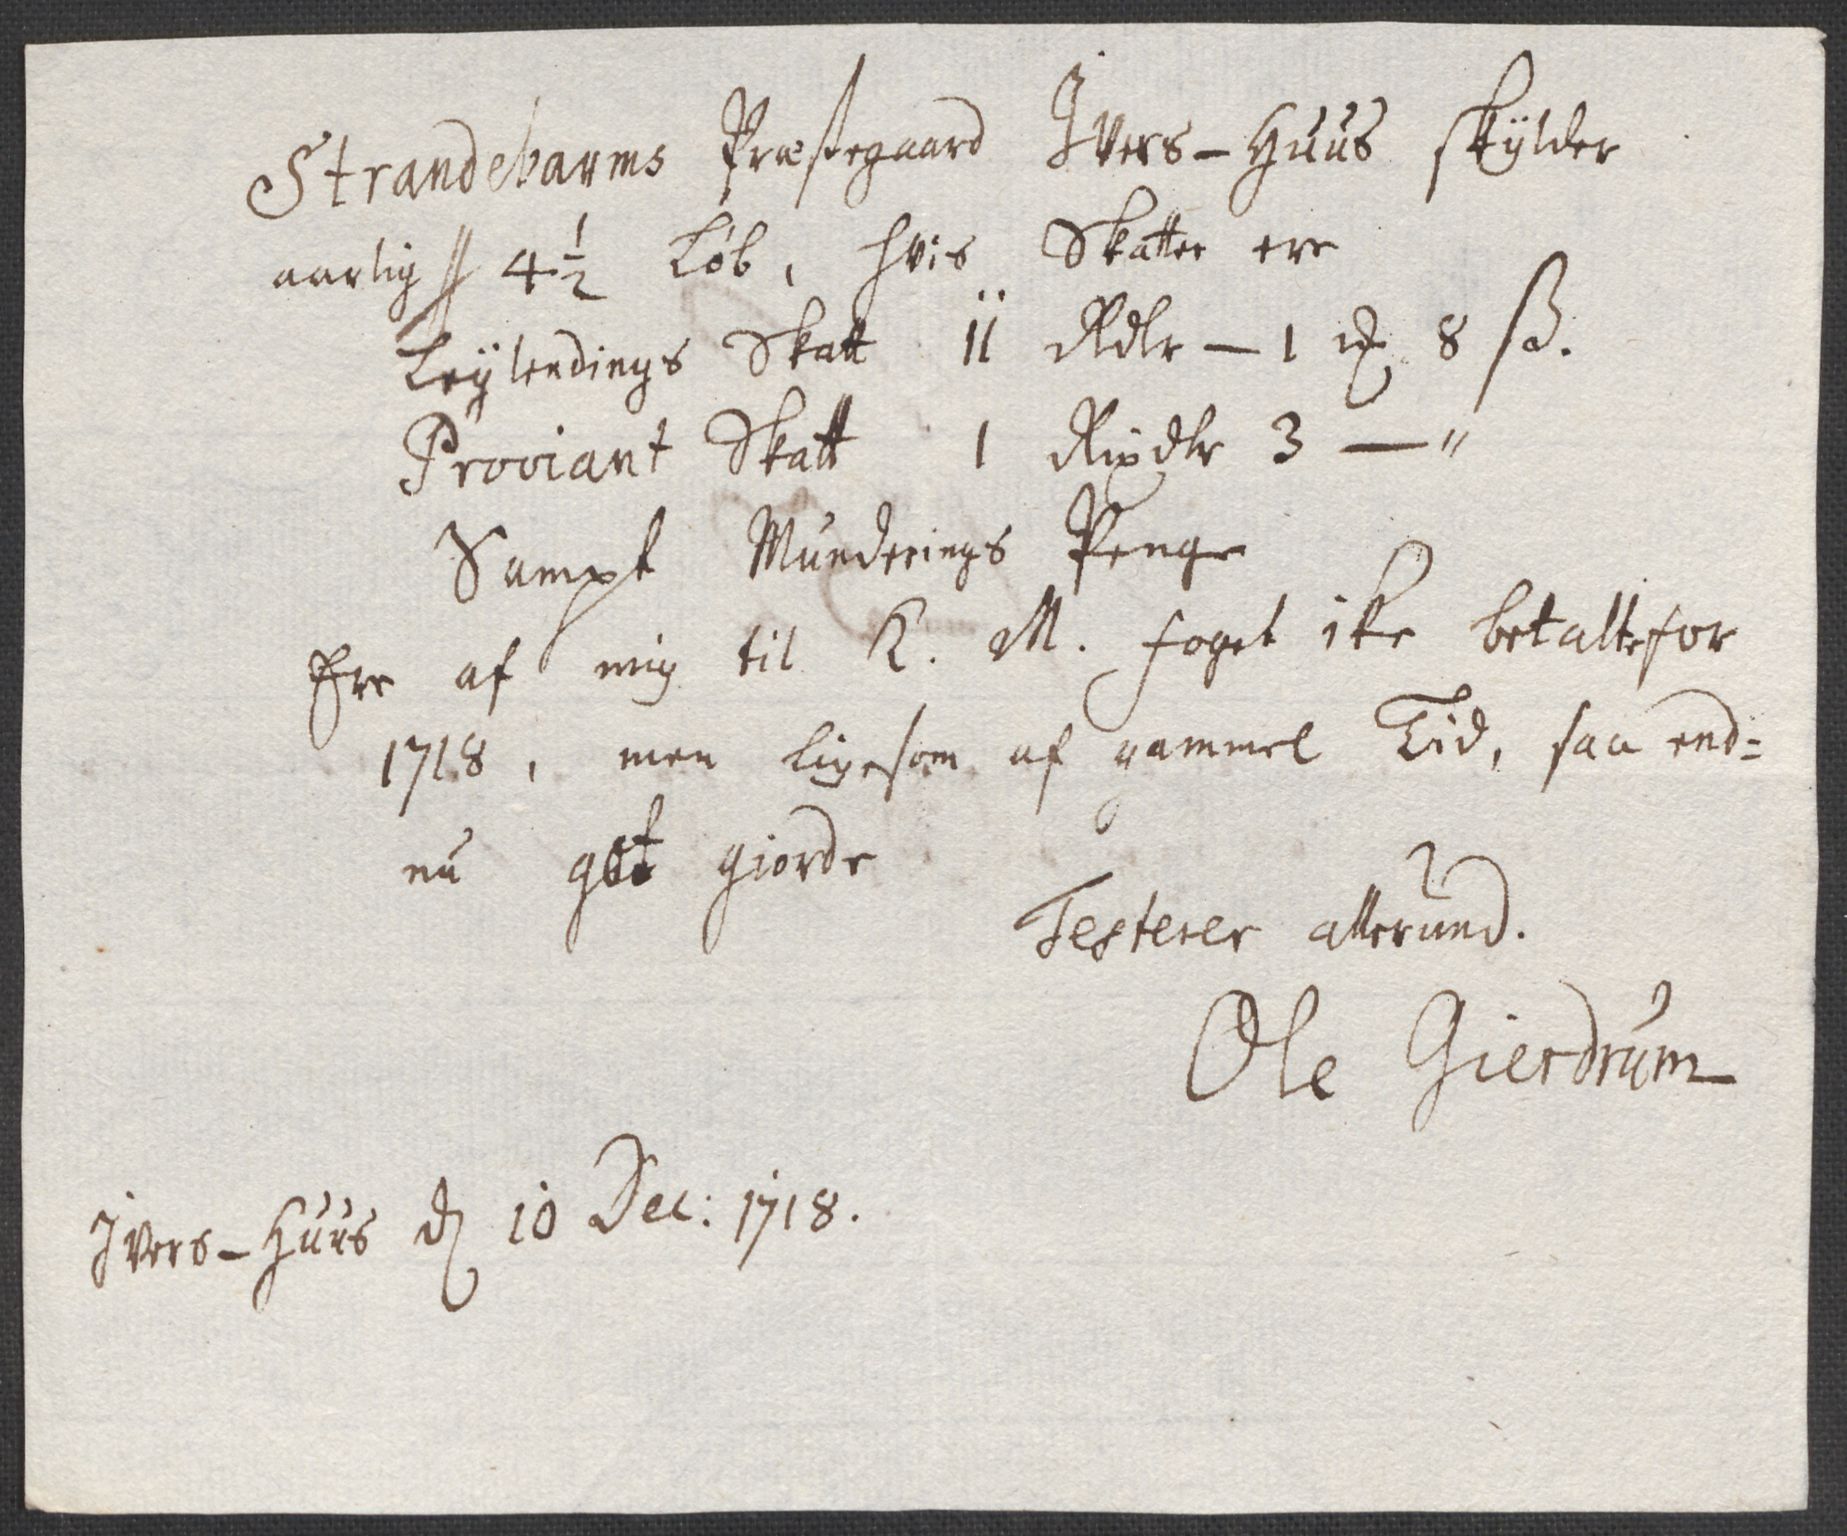 Strandebarms Præstegaard Ivers-Huus skylder
aarlig 4 1/2 Løb, hvis Skatter ere
Leylendings Skatt 11 Rdlr - 1 ß 8 ß.
Proviant Skatt 1 Rixdlr 3 — "
Sampt Munderings Penge
Ere af mig til K. M. foget ike betalte for
1718, men ligesom af gammel Tid, saa end=
nu gott giorde
Testerer allerund.
Ole Gierdrum
Ivers-Huus d 10 Dec: 1718.